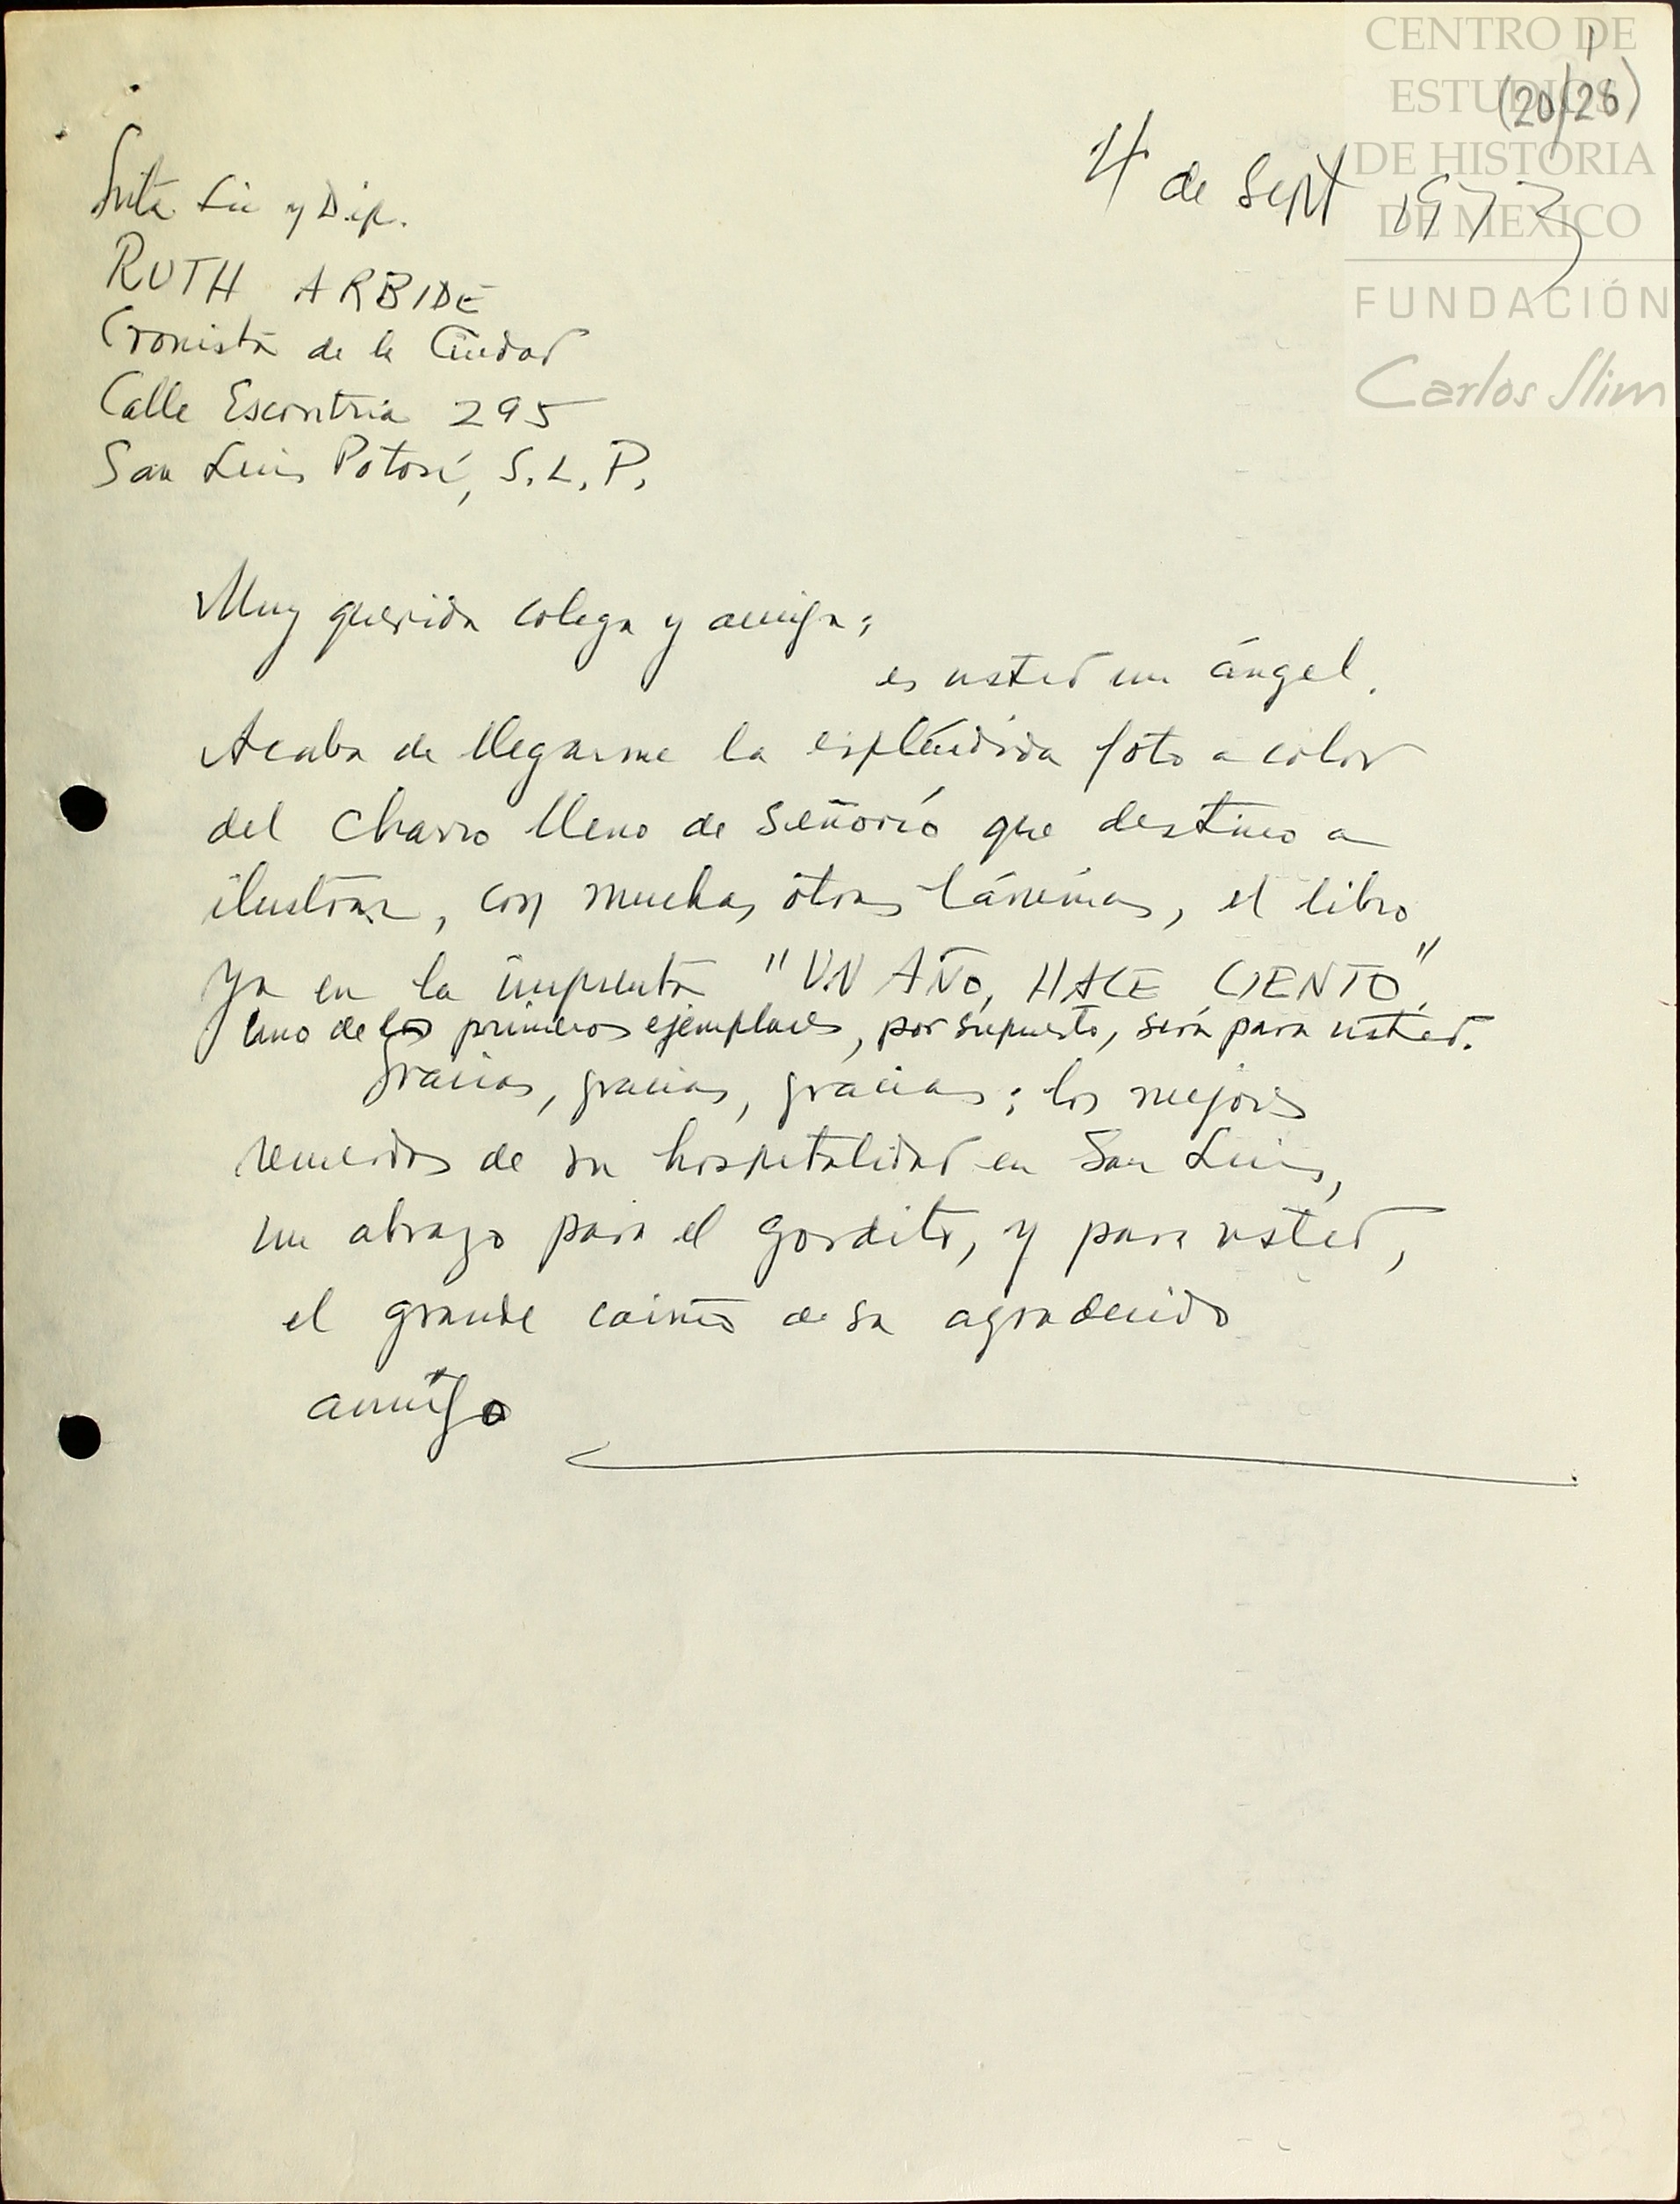 CENTRO DE
ESTUDIOS
DE HISTORIA
DE MEXICO
FUNDACIÓN
Carlos Slim
1
(20/26)
4 de Sept 1973
Srita Lic y Dip.
RUTH ARBIDE
Cronista de la Ciudad
Calle Escontria 295
San Luis Potosí, S.L.P.
Muy querida colega y amiga:
es usted un ángel.
Acaba de llegarme la espléndida foto a color
del charro lleno de señorío que destino a
ilustrar, con muchas otras láminas, el libro
ya en la imprenta "UN AÑO, HACE CIENTO".
Uno de los primeros ejemplares, por supuesto, será para usted.
Gracias, gracias, gracias; los mejores
recuerdos de su hospitalidad en San Luis,
un abrazo para el gordito, y para usted,
el grande cariño de su agradecido
amigo